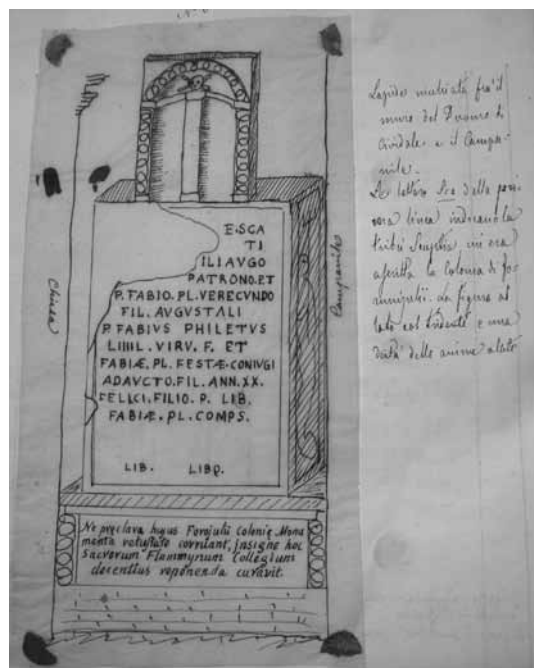 E.SCA
TI
ILIAVGO
PATRONO.ET
P.FABIO.PL.VERECVNDO
FIL.AVGVSTALI
P.FABIVS PHILETVS
LIIIL.VIRV.F.ET
FABIÆ.PL.FESTÆ.CONIVGI
ADAVCTO.FIL.ANN.XX.
FELICI.FILIO.P.LIB.
FABIÆ.PL.COMPS.
LIB. LIBQ.
Ne pręclava hujus Forojulii Colonię Monu
menta vetustate corruant, insigne hoc
Sacrorum Flammynum Collegium
decentius reponenda curavit.
Chiesa
Campanile
Lapide murata fra il
muro del Duomo di
Cividale e il Campa-
nile.
Le lettere Sca della pri-
ma linea indicano la
tribù Scaptia cui era
ascritta la Colonia di
La figura al
lato col tridente e una
delle anime alate